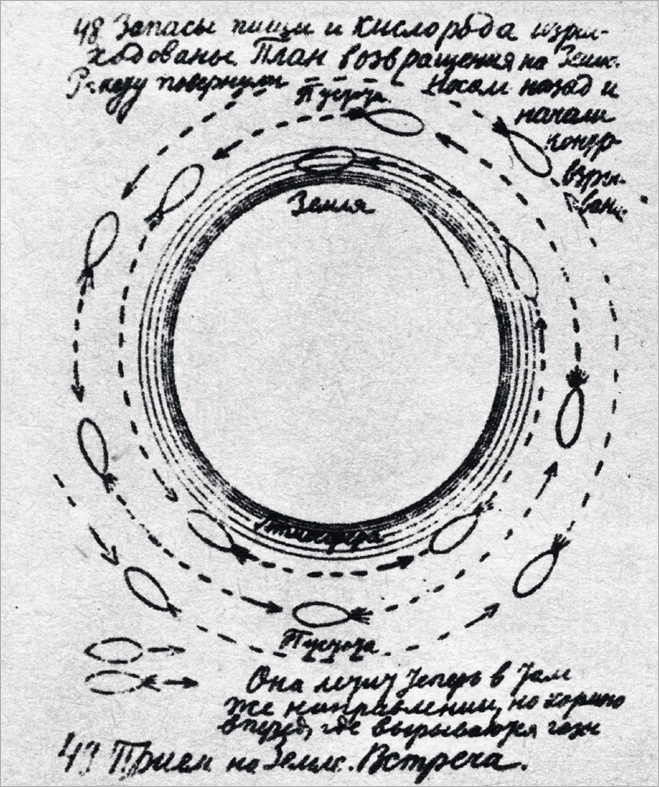 48 Запасы пищи и кислорода израс-
ходованы. План возвращения на Землю.
Ракету повернули носом назад и
начали
контр-
взры-
вание
Пустота
Земля
Атмосфера
Пустота
Она летит теперь в том
же направлении, но кормою
вперед, где вырываются газы
43 Прием на Земле. Встреча.